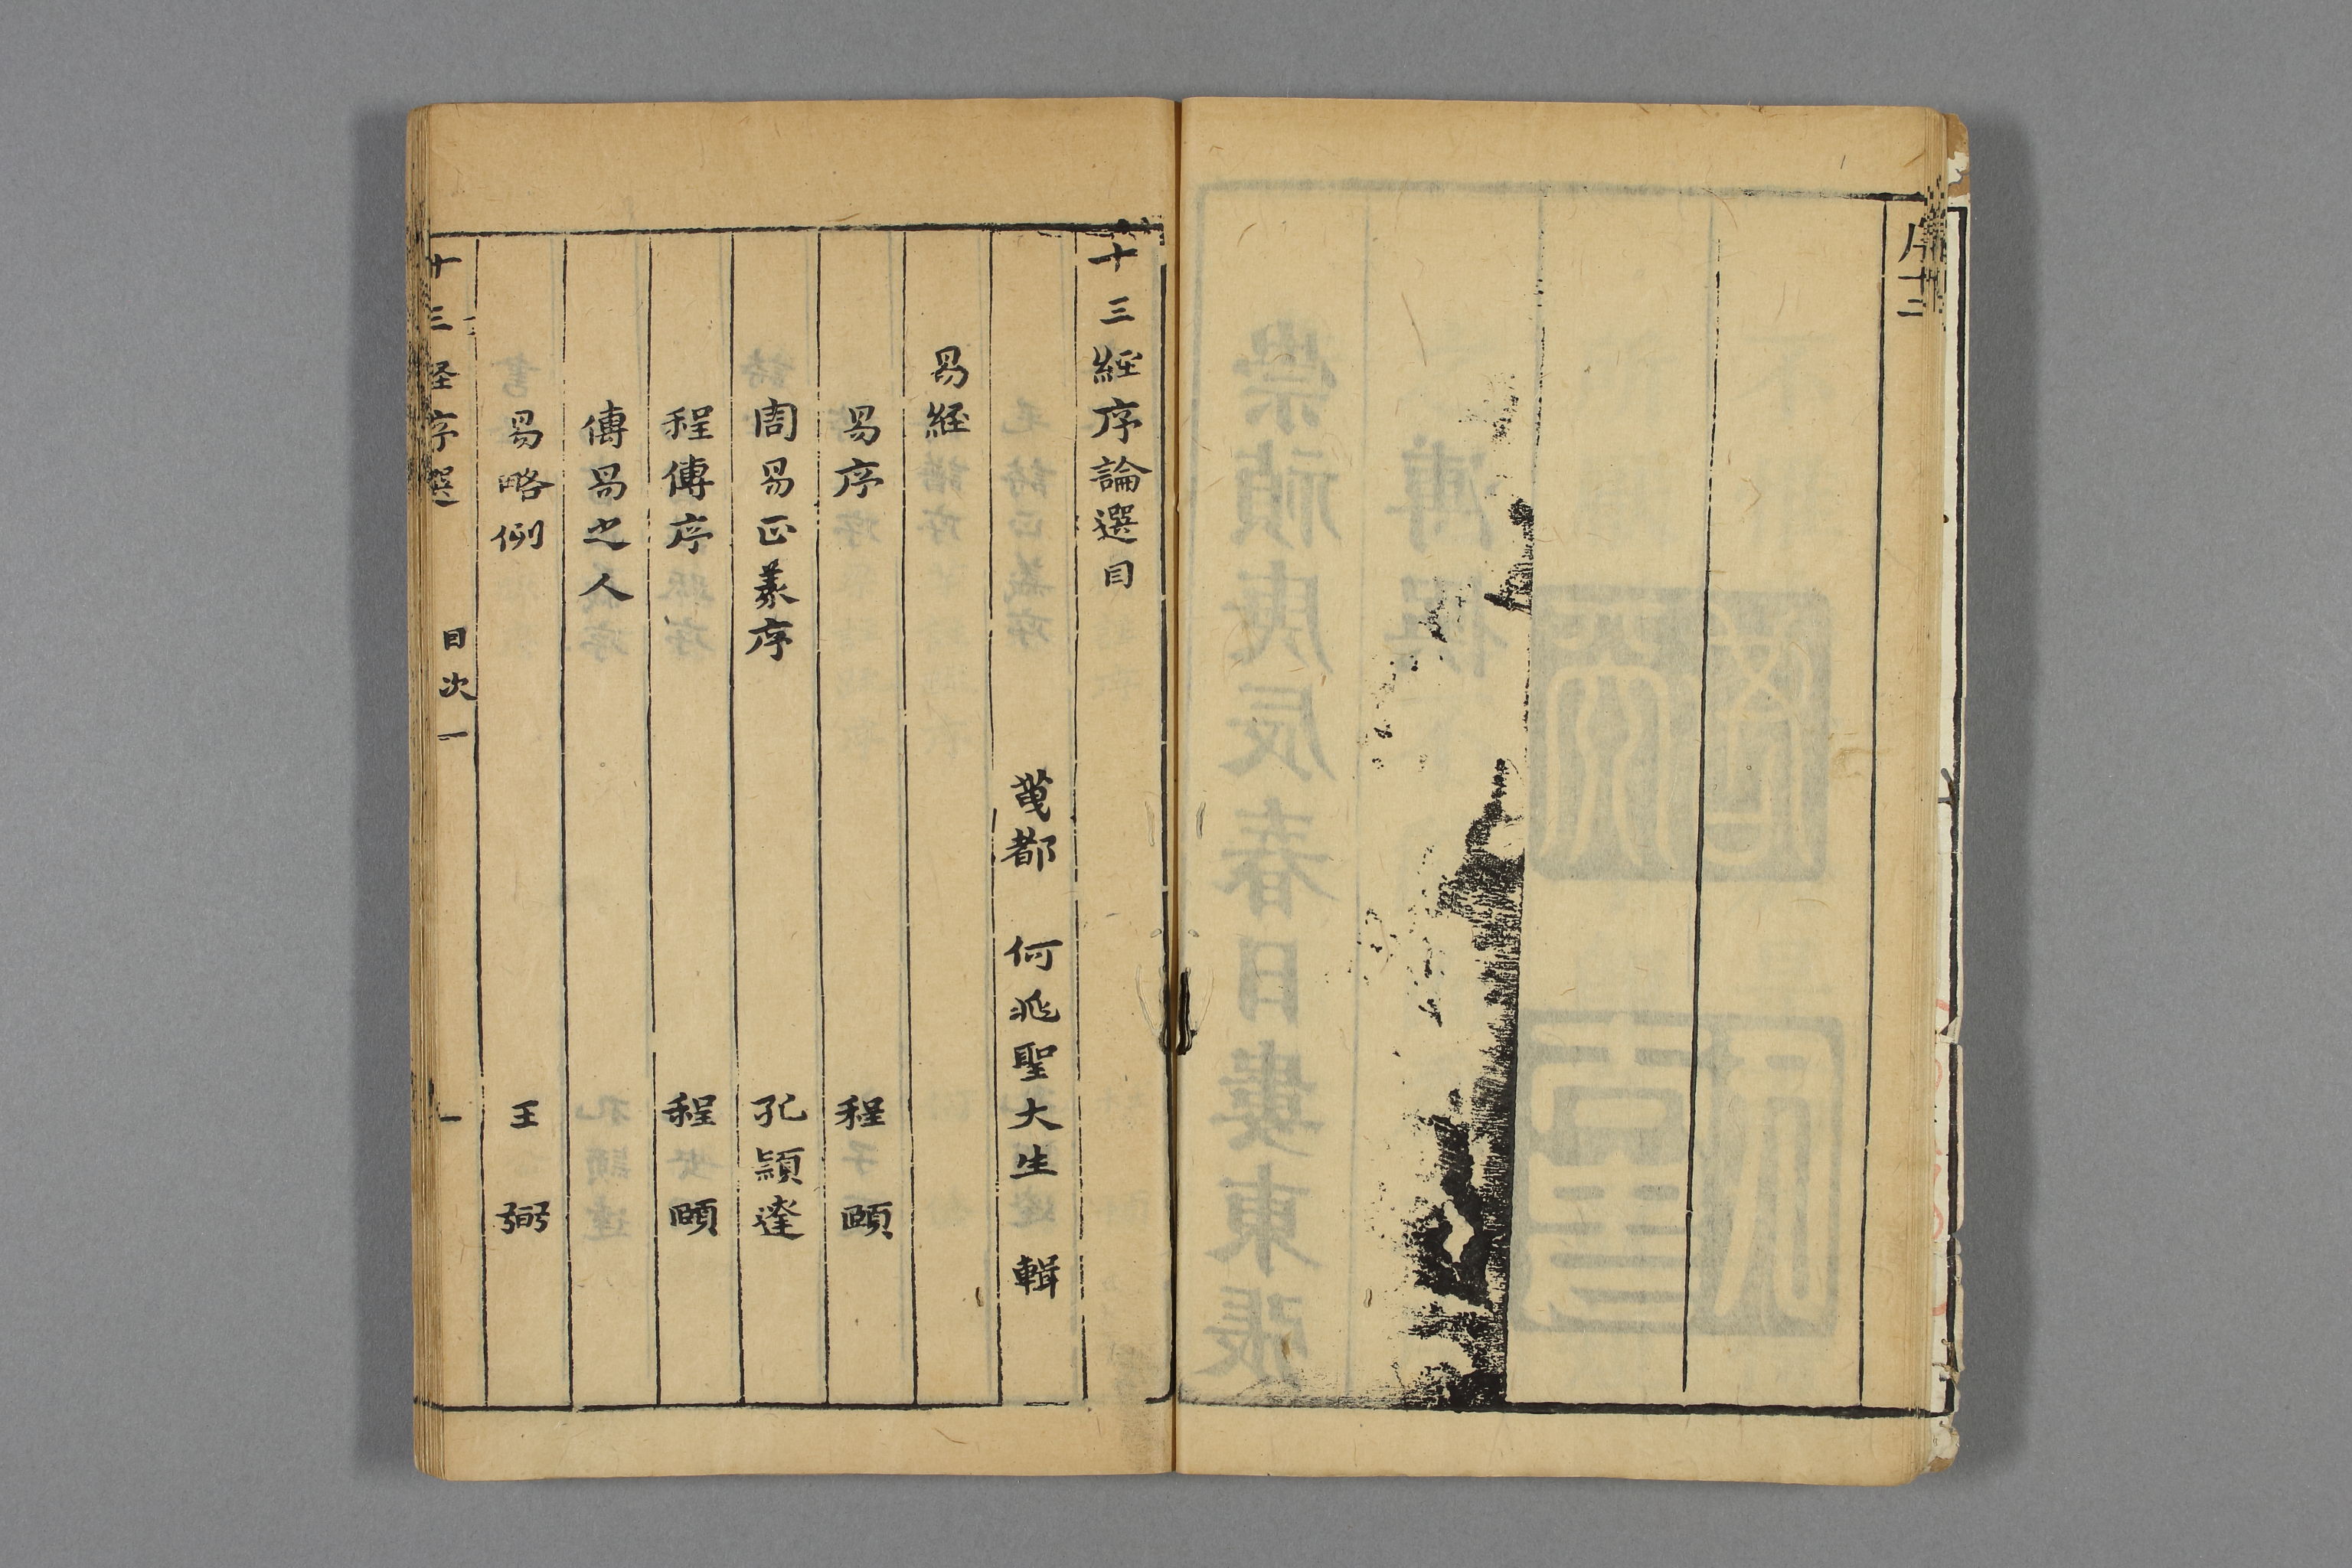 序十二
十三經序論選目
蕺都 何兆聖大生 輯
易經
易序 程頤
周易正義序 孔穎達
程傳序 程頤
傳易之人
易略例 王弼
十三經序選 目次一 一